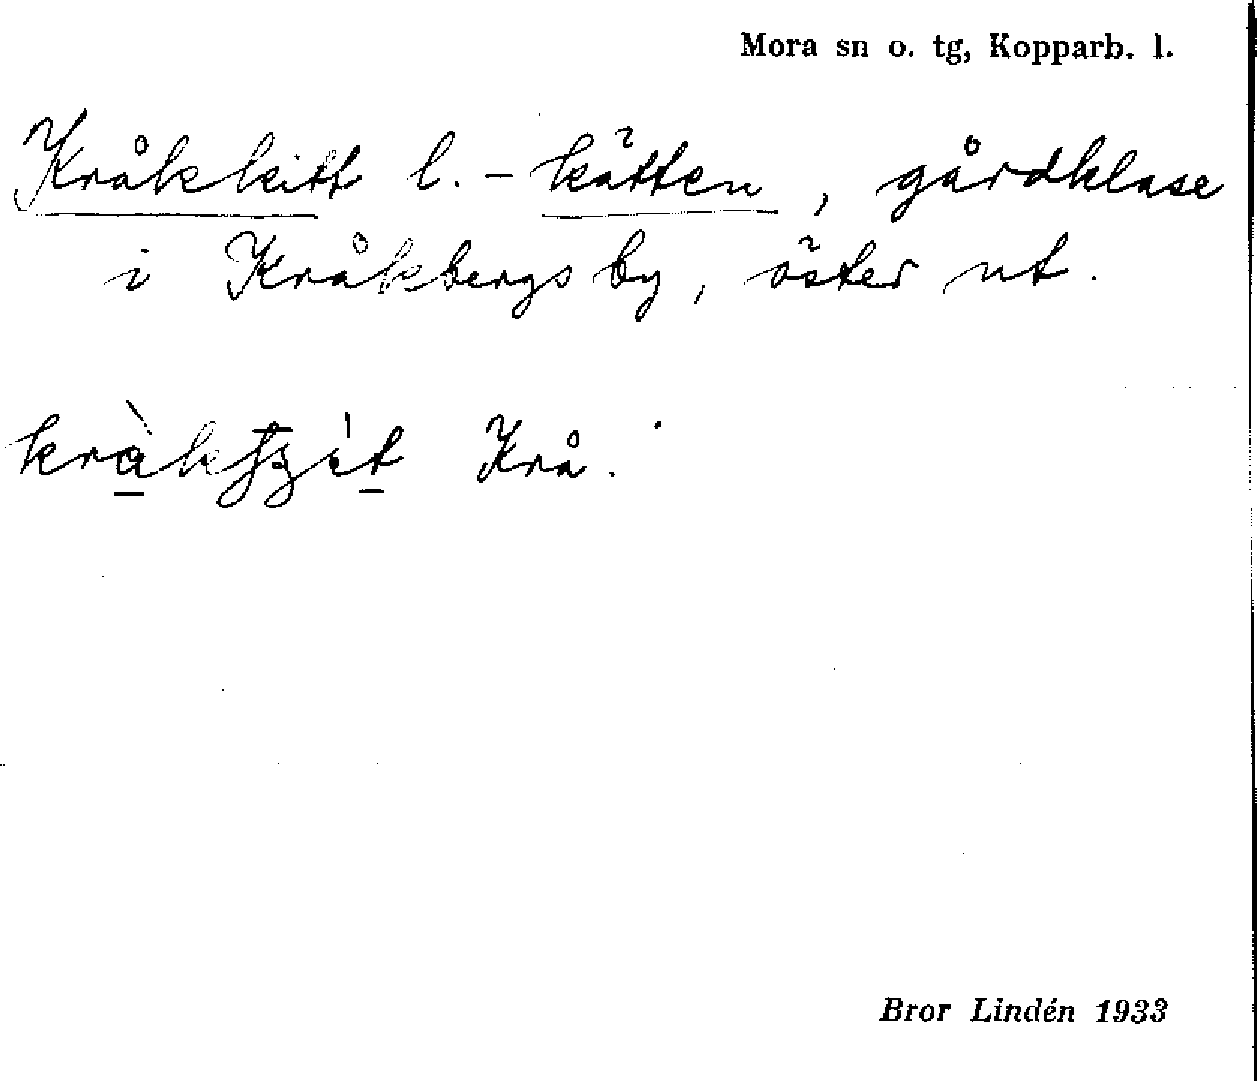 Mora sn o. tg, Kopparb. l.
Kråkkitt l. - kätten, gårdklase
i Kråkbergs by, öster ut.
Krå.
Bror Lindén 1933